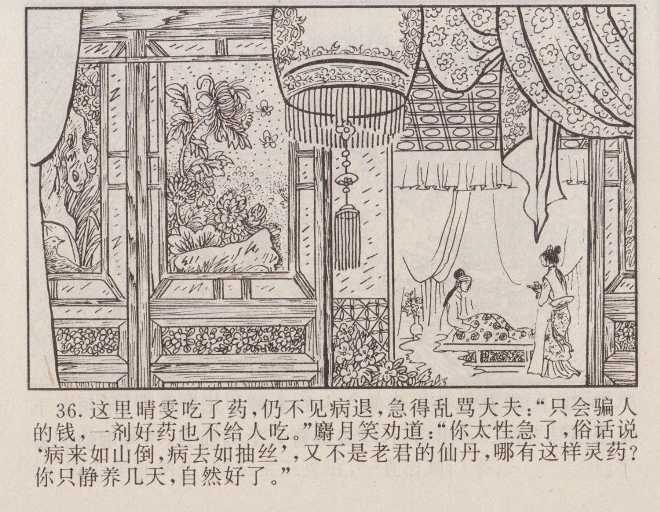 36. 这里晴雯吃了药，仍不见病退，急得乱骂大夫：“只会骗人
的钱，一剂好药也不给人吃。”麝月笑劝道：“你太性急了，俗话说
‘病来如山倒，病去如抽丝’，又不是老君的仙丹，哪有这样灵药？
你只静养几天，自然好了。”